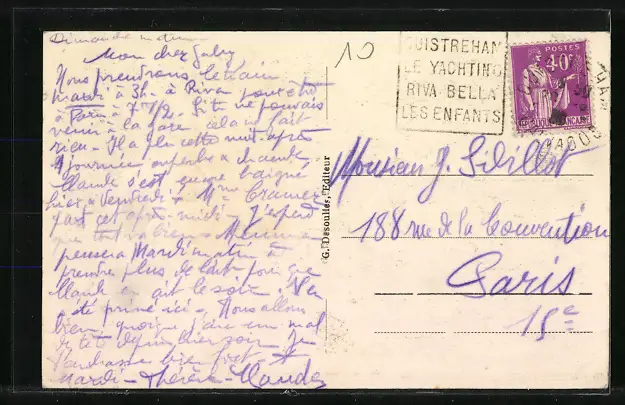 Dimanche matin
Mon cher Gaby
Nous prendrons le train
mardi à 3h. à Riva pour être
à Paris à 7h 1/2. Si tu ne pouvais
venir à la gare cela ne fait
rien. Il a plu cette nuit après
1 journée superbe & chaude.
s'est encore baignée
hier & Vendredi. Mme Cramer
part cet après-midi. J'espère
que tout va bien.
pensera Mardi matin à
prendre plus de lait pour que
ait le soir.
été primé ici. Nous allons
bien, quoique j'aie eu mal
hier soir. Je
t'embrasse bien fort. à
Mardi - Thérèse -
10
OUISTREHAM
LE YACHTING
RIVA-BELLA
LES ENFANTS
POSTES
40c
G. Desoulles, Editeur
Monsieur J. Sibillot
188 rue de la Convention
Paris
15e